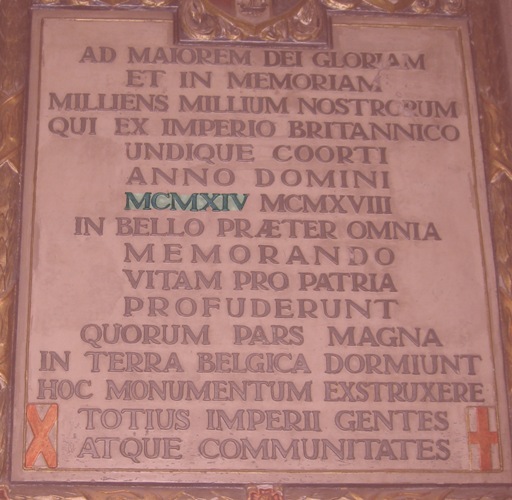 AD MAIOREM DEI GLORIAM
ET IN MEMORIAM
MILLIENS MILLIUM NOSTRORUM
QUI EX IMPERIO BRITANNICO
UNDIQUE COORTI
ANNO DOMINI
MCMXIV MCMXVIII
IN BELLO PRÆTER OMNIA
MEMORANDO
VITAM PRO PATRIA
PROFUDERUNT
QUORUM PARS MAGNA
IN TERRA BELGICA DORMIUNT
HOC MONUMENTUM EXSTRUXERE
TOTIUS IMPERII GENTES
ATQUE COMMUNITATES